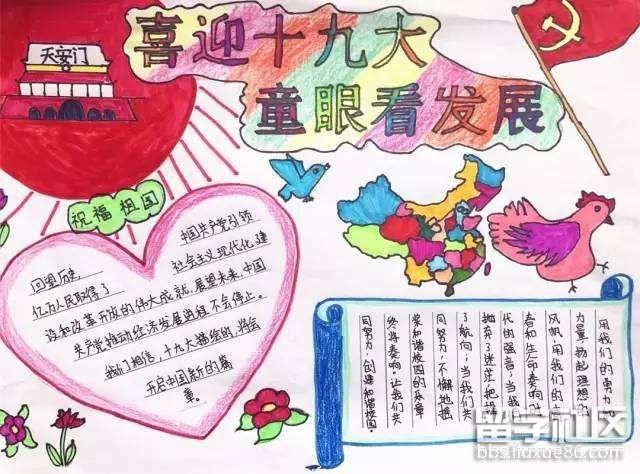 天安门
喜迎十九大
童眼看发展
祝福祖国
中国共产党引领
社会主义现代化建
回望历史,
亿万人民取得了
设和改革开放的伟大成就,展望未来,中国
共产党推动经济发展进程不会停止。
我们相信,十九大描绘的,将会
开启中国新的篇
章。
用我们的勇力
力量,扬起理想的
风帆,用我们的
春和生命奏响
代的强音;当我
抛弃了迷茫,把
了航向;当我们共
同努力,不懈地摇
桨和谐校园的乐章
终将奏响。让我们共
同努力,创建和谐校园。
留学社区
bbs.liuxue86.com